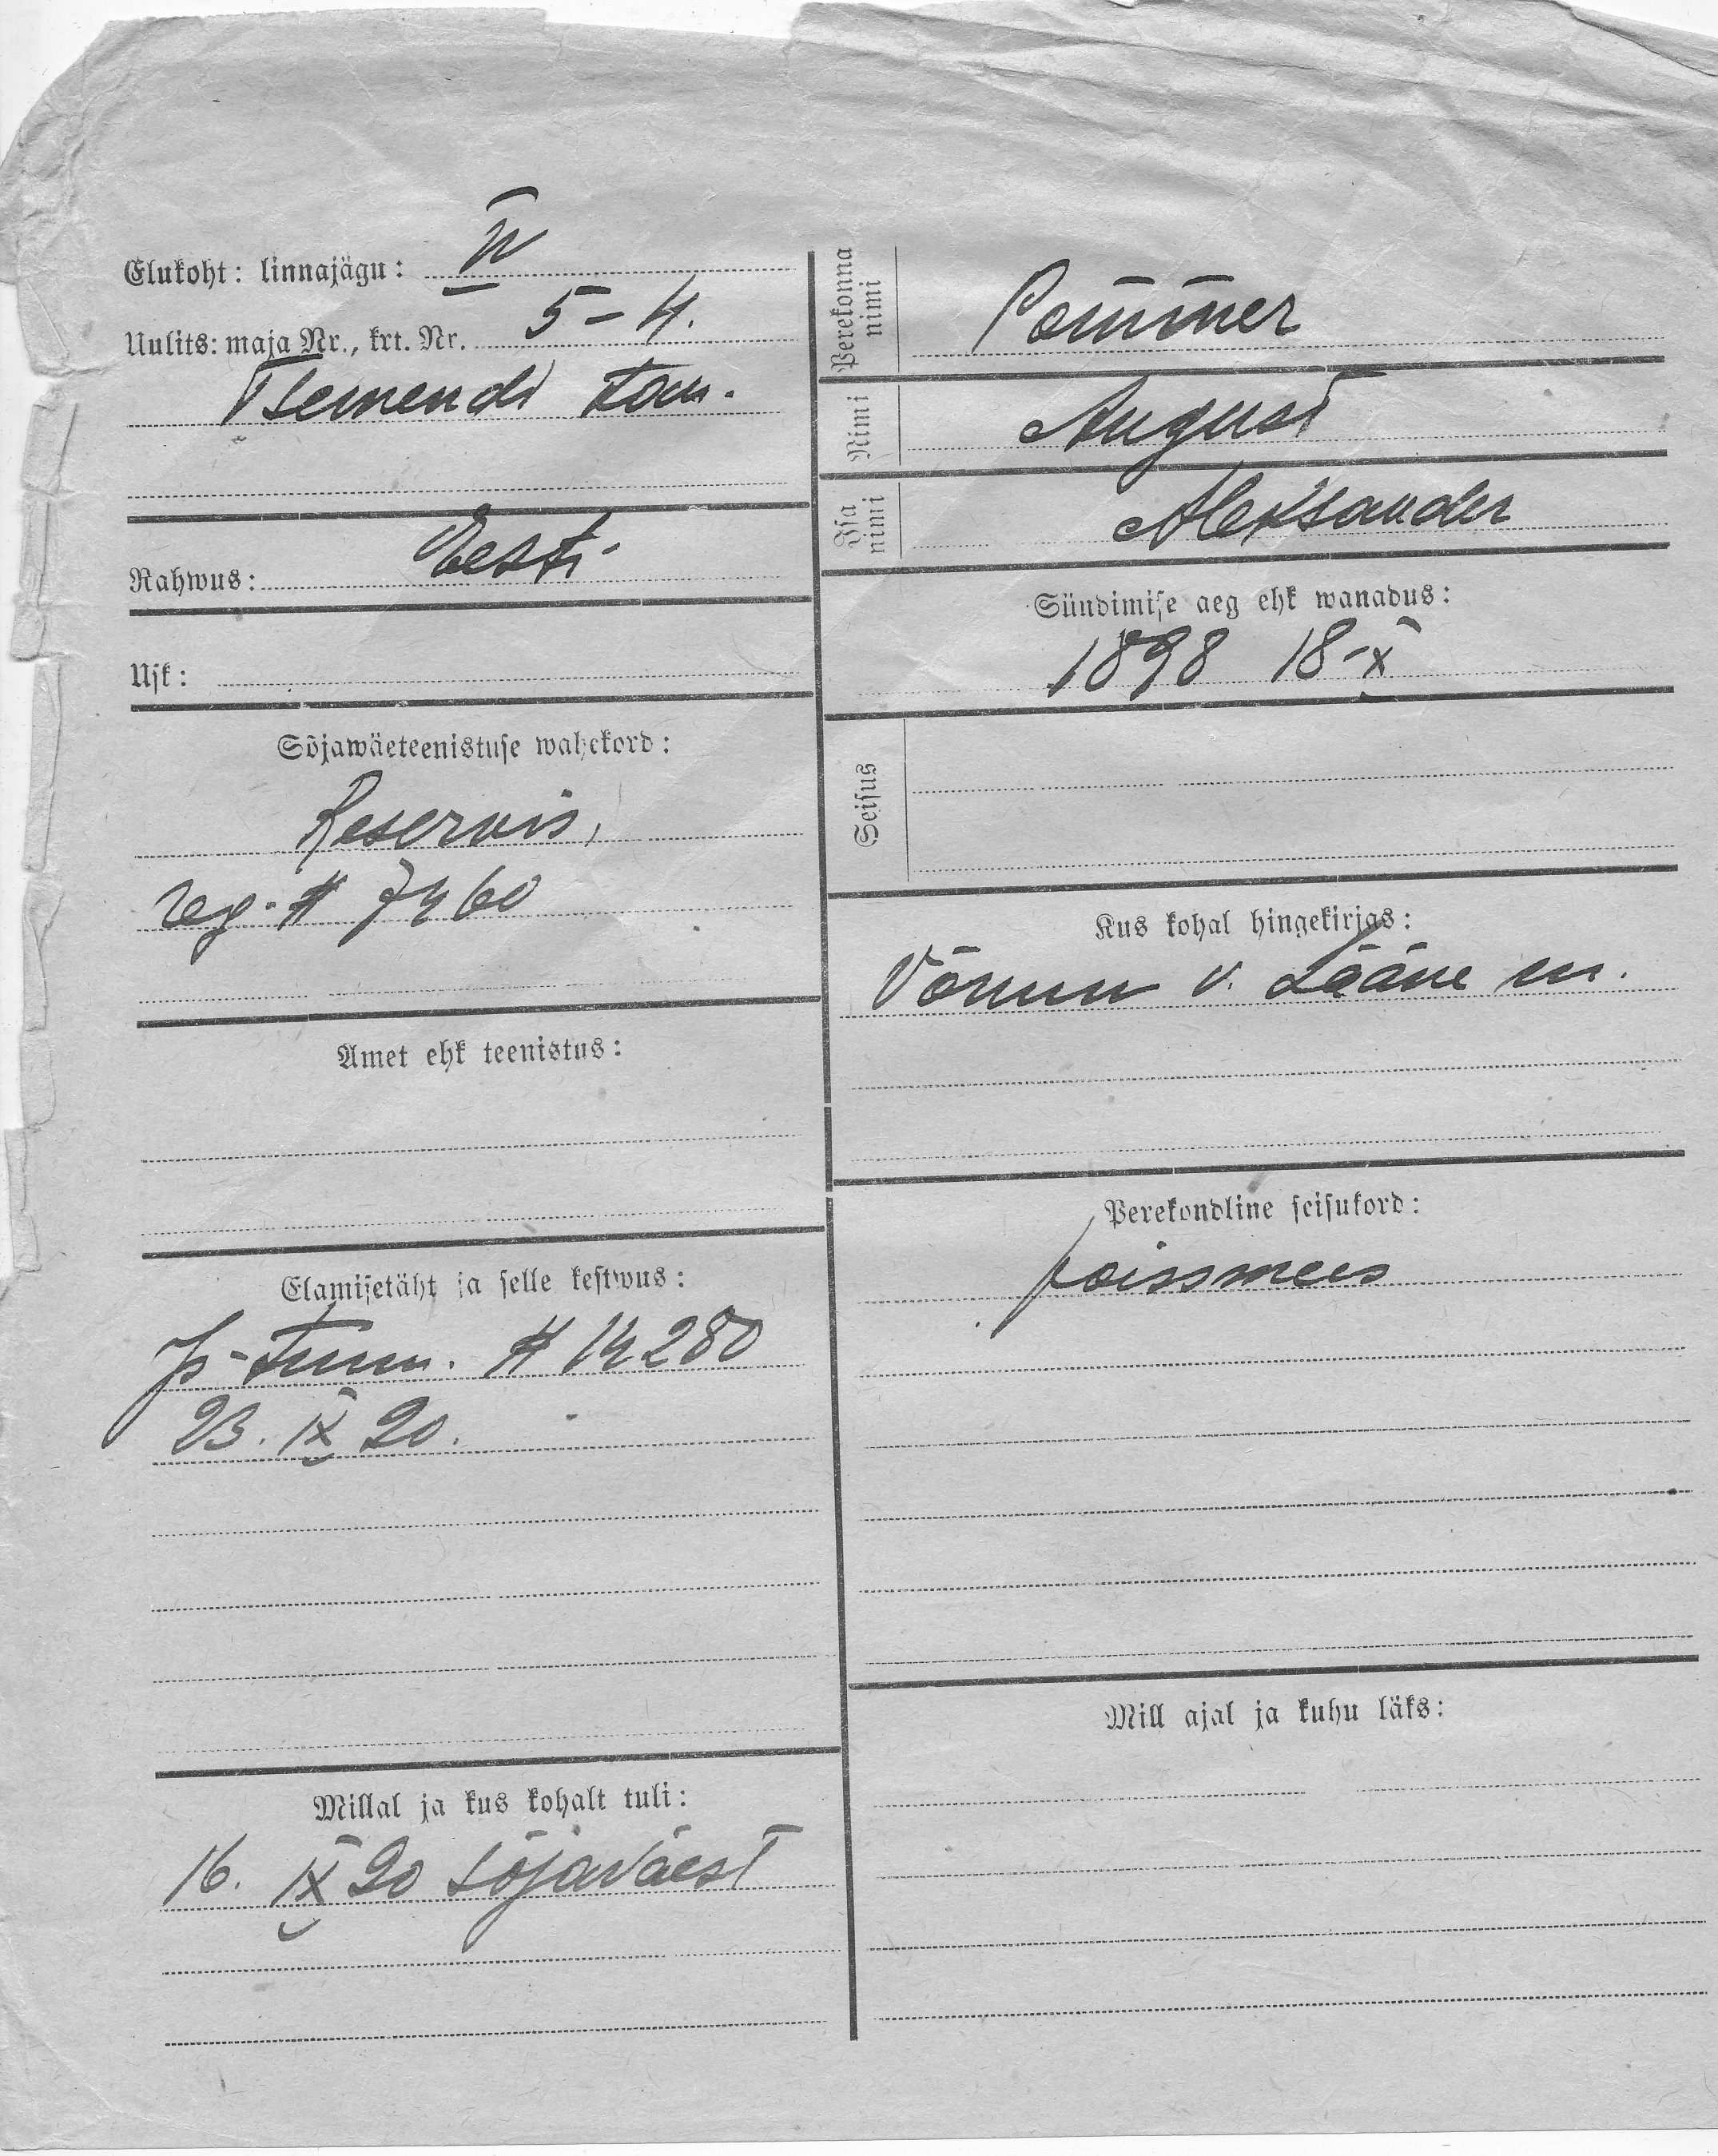 Elukoht: linnajägu: IV
Uulits: maja Nr., krt. Nr. 5-4.
Tsemendi tän.
Rahwus: Eesti
Usk:
Sõjawäeteenistuse wahekord:
Reservis,
reg. № 7460
Amet ehk teenistus:
Elamisetäht ja selle kestwus:
Is-tunn. № 14280
23. IX 20.
Millal ja kus kohalt tuli:
16. IX 20 sõjaväest
Perekonna nimi Pommer
Nimi August
Isa nimi Aleksander
Sündimise aeg ehk wanadus:
1898 18-X
Seisus
Kus kohal hingekirjas:
v. Lääne m.
Perekondline seisukord:
poissmees
Mill ajal ja kuhu läks: